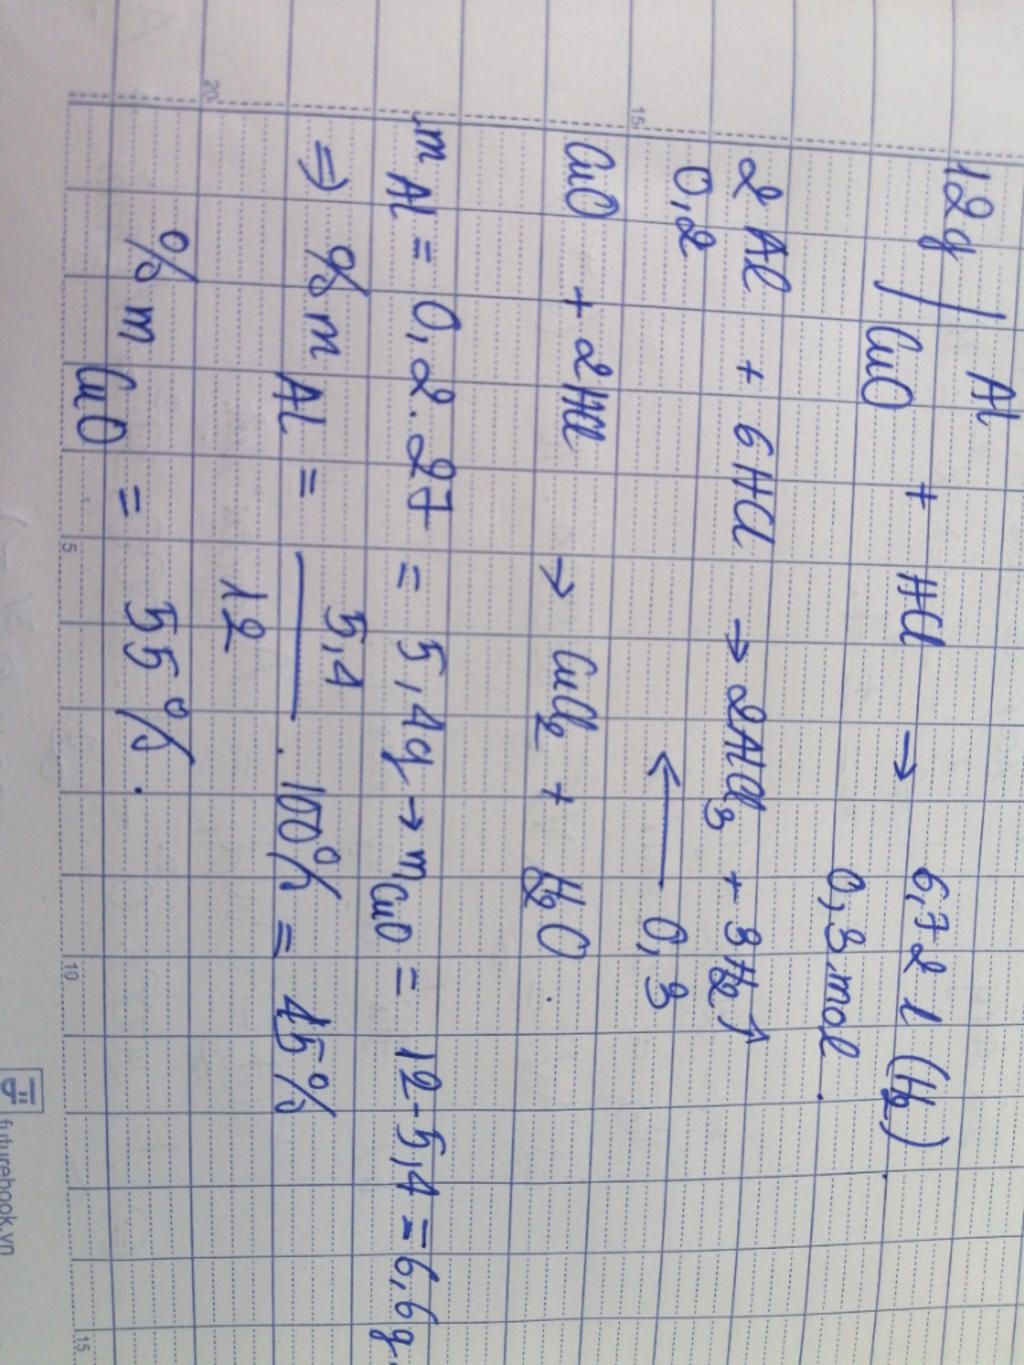 12g / Al
/ CuO + HCl → 6,72 l (H2).
0,3 mol.
2 Al + 6 HCl → 2AlCl3 + 3H2↑
0,2 ← 0,3
CuO + 2HCl → CuCl2 + H2O.
mAl = 0,2.27 = 5,4g → mCuO = 12-5,4 = 6,6g.
⇒ %mAl = 5,4
12 . 100% = 45%
%mCuO = 55%.
15
20
5
10
15
futurebook.vn